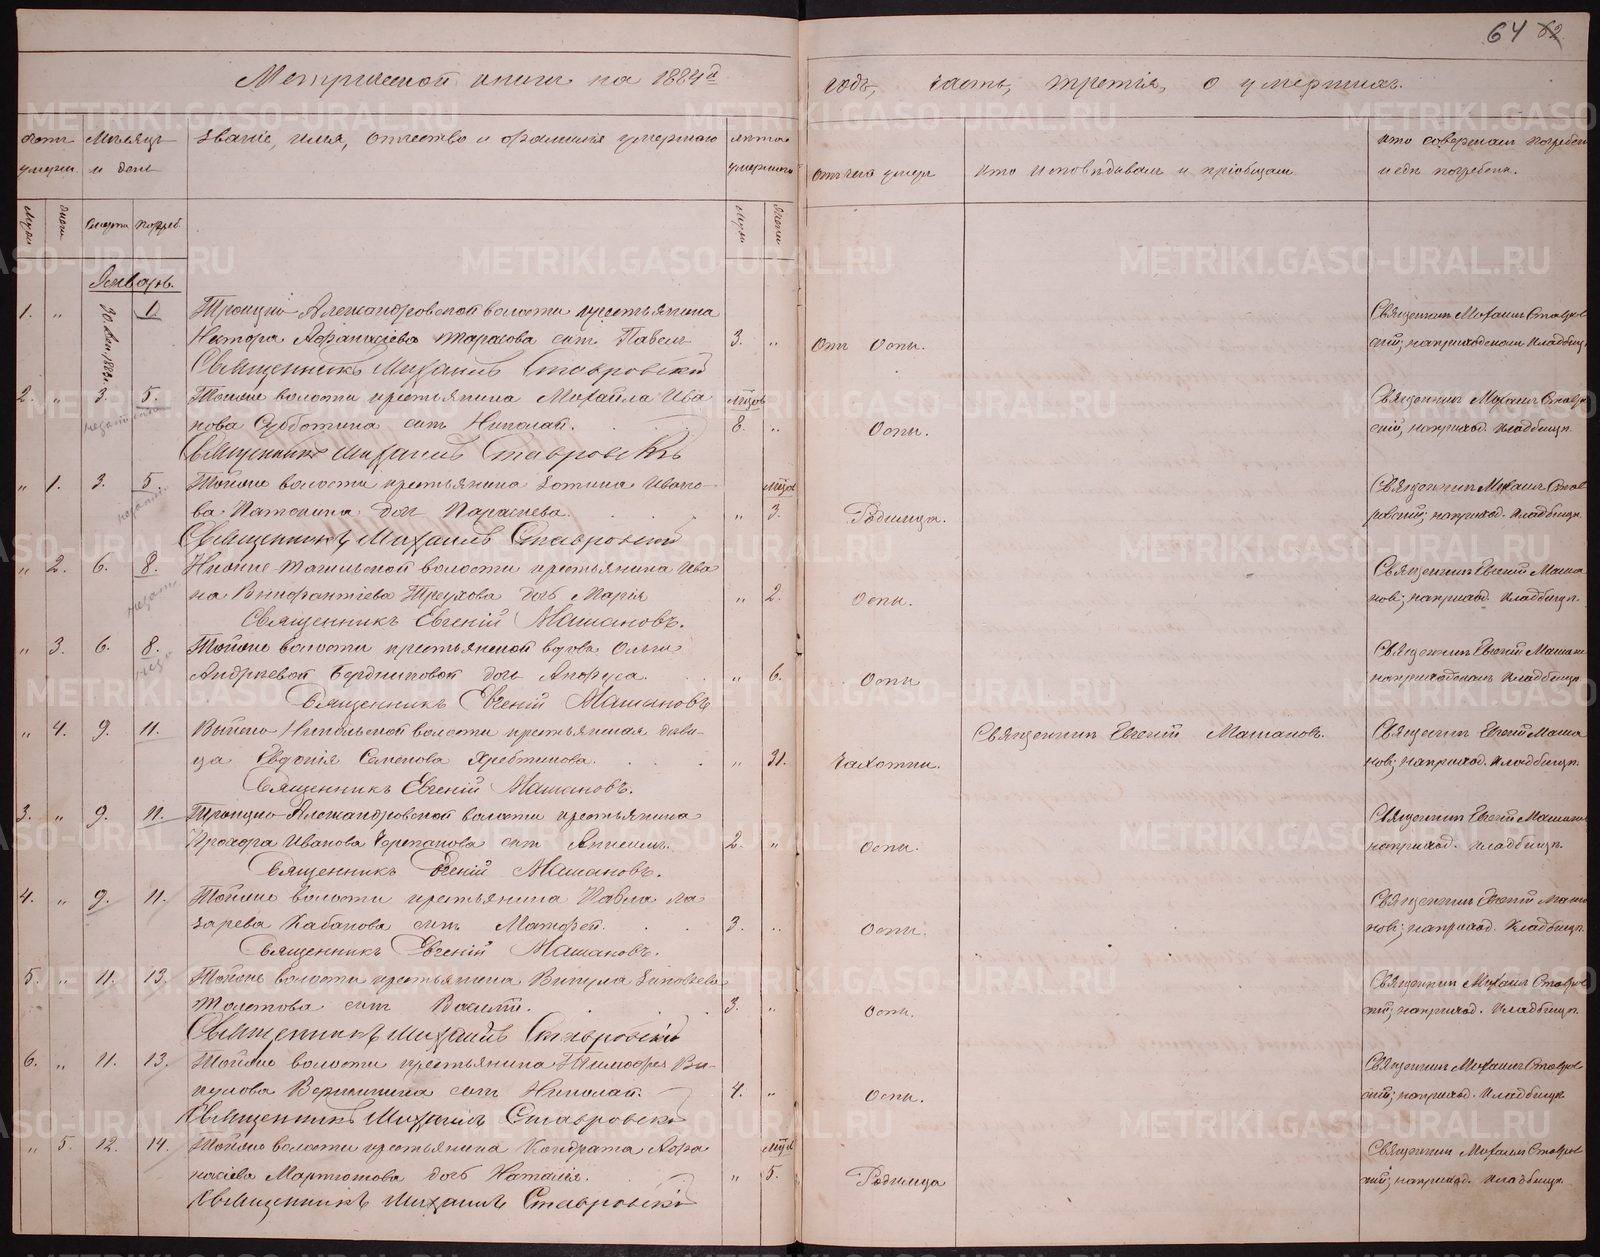 64 62
Метрической книги на 1884й годъ, часть третія, о умершихъ.
Счетъ умерш.
Мѣсяцъ и день
Званіе, имя, отчество и фамилія умершаго
Лѣта умершаго
Отъ чего умеръ
Кто исповѣдывалъ и пріобщалъ
Кто совершалъ погребеніе и гдѣ погребены.
Муж. Женс. Смерти Погреб. Муж. Женс.
Январь.
1. „ 30 Дек. 1883г. 1. Троицко-Александровской волости крестьянина
Нестора Афанасіева Тарасова сынъ Павелъ 3. „ Отъ Оспы. Священникъ Михаилъ Ставров
скій; на приходскомъ кладбищѣ
Священникъ Михаилъ Ставровскій
2. „ 3. 5. Тойже волости крестьянина Михаила Ива мѣсяцъ Священникъ Михаилъ Ставров
нова Субботина сынъ Николай. 8. „ Оспы. скій; на приход. кладбищѣ.
Священникъ Михаилъ Ставровскій
„ 1. 3. 5. Тойже волости крестьянина Зотика Ивано- Священникъ Михаилъ Став
ва Патокина дочь Параскева. „ 3. Родимца. ровскій; на приход. кладбищѣ
Священникъ Михаилъ Ставровскій
„ 2. 6. 8. Нижне-Тагильской волости крестьянина Ива Священникъ Евгеній Маша
на дочь Марія „ 2. Оспы. новъ; на приход. кладбищѣ.
Священникъ Евгеній Машановъ.
„ 3. 6. 8. Тойже волости крестьянской вдовы Ольги Священникъ Евгеній Машано
Андреевой Бердниковой дочь Анфуса. „ 6. Оспы на приходскомъ кладбищѣ
Священникъ Евгеній Машановъ
„ 4. 9. 11. Выйско-Никольской волости крестьянская дѣви- Священникъ Евгеній Машановъ. Священникъ Евгеній Маша
ца Евдокія Семенова Хребтикова. „ 31. Чахотки. новъ; на приход. кладбищѣ.
Священникъ Евгеній Машановъ.
3. „ 9. 11. Троицко-Александровской волости крестьянина Священникъ Евгеній Машано
Прохора Иванова Черепанова сынъ 2. „ Оспы. на приход. кладбищѣ.
Священникъ Евгеній Машановъ.
4. „ 9. 11. Тойже волости крестьянина Павла Ла Священникъ Евгеній Маша
зарева Кабанова сынъ Матфей. 3. „ Оспы. новъ; на приход. кладбищѣ.
Священникъ Евгеній Машановъ.
5. „ 11. 13. Тойже волости крестьянина Викула Зиновьева Священникъ Михаилъ Ставров
Толстова сынъ Василій. 3. „ Оспы. скій; на приход. кладбищѣ.
Священникъ Михаилъ Ставровскій
6. „ 11. 13. Тойже волости крестьянина Тимофея Ви- Священникъ Михаилъ Ставров
кулова Вершинина сынъ Николай. 4. „ Оспы. скій; на приход. кладбищѣ
Священникъ Михаилъ Ставровскій
„ 5. 12. 14. Тойже волости крестьянина Кондрата Афа Священникъ Михаилъ Ставров
насіева Мартюшова дочь Наталія. „ 5. Родимца скій; на приход. кладбищѣ.
Священникъ Михаилъ Ставровскій
METRIKI.GASO-URAL.RU